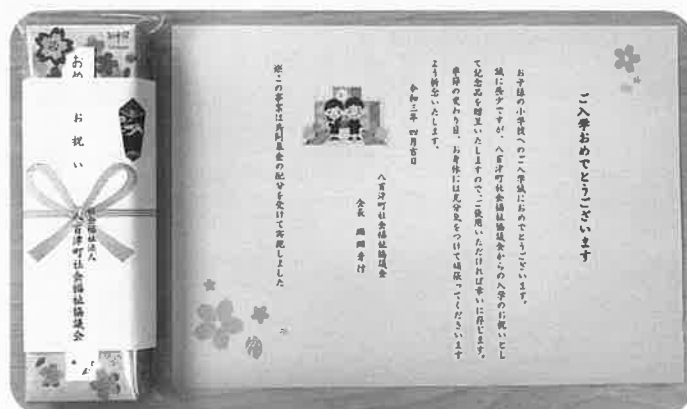 ご入学おめでとうございます
お子様の小学校へのご入学誠におめでとうございます。
誠に些少ですが、八百津町社会福祉協議会からの入学のお祝いとし
て記念品を贈呈いたしますので、ご使用いただければ幸いに存じます。
季節の変わり目、お身体には充分気をつけて頑張ってくださいます
よう祈念いたします。
令和三年 四月吉日
八百津町社会福祉協議会
会長
※この事業は共同募金の配分を受けて実施しました
おめ
お祝い
社会福祉法人
八百津町社会福祉協議会